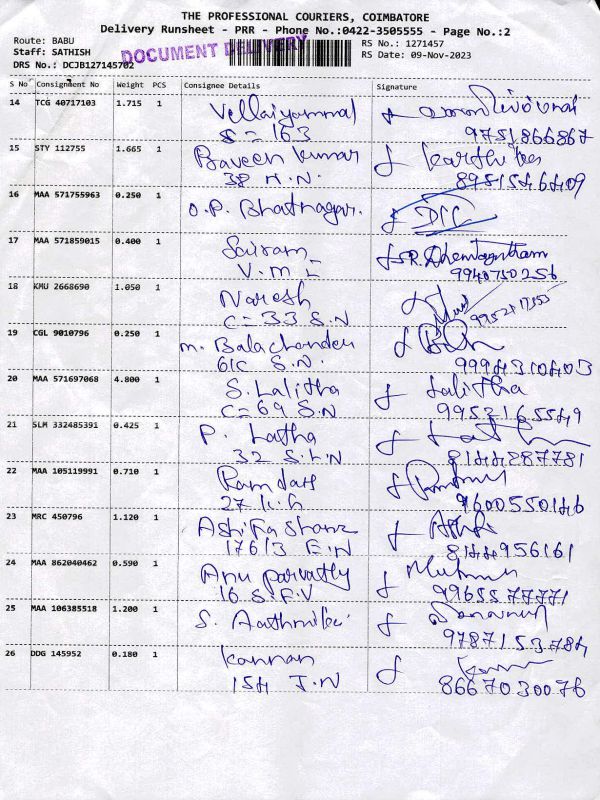 THE PROFESSIONAL COURIERS, COIMBATORE
Delivery Runsheet - PRR - Phone No.:0422-3505555 - Page No.:2
Route: BABU
Staff: SATHISH
DRS No.: DCJB127145702
DOCUMENT DELIVERY
RS No.: 1271457
RS Date: 09-Nov-2023
S No Consignment No Weight PCS Consignee Details Signature
14 TCG 40717103 1.715 1 Vellaiyammal
S = 163 9751866867
15 STY 112755 1.665 1 Baveen Kumar
38 H.N.
16 MAA 571755963 0.250 1 O.P. Bhatnagar.
17 MAA 571859015 0.400 1 Sairam
V.M.L 9940750256
18 KMU 2668690 1.050 1 Naresh
C = 33 S.N
19 CGL 9010796 0.250 1 M. Balachander
61C S.N.
20 MAA 571697068 4.800 1 S. Lalitha Lalitha
C = 69 S.N
21 SLM 332485391 0.425 1 P. Latha
32 S.L.N 8144287781
22 MAA 105119991 0.710 1 Ramdas
27 K.G 9600550146
23 MRC 450796 1.120 1
176/3 E.N 8144956161
24 MAA 862040462 0.590 1 Anu parvathy
16 S.F.V 9965577771
25 MAA 106385518 1.200 1 S. Aathmika
9787153784
26 DDG 145952 0.180 1 Kannan
154 J.N 8667030076